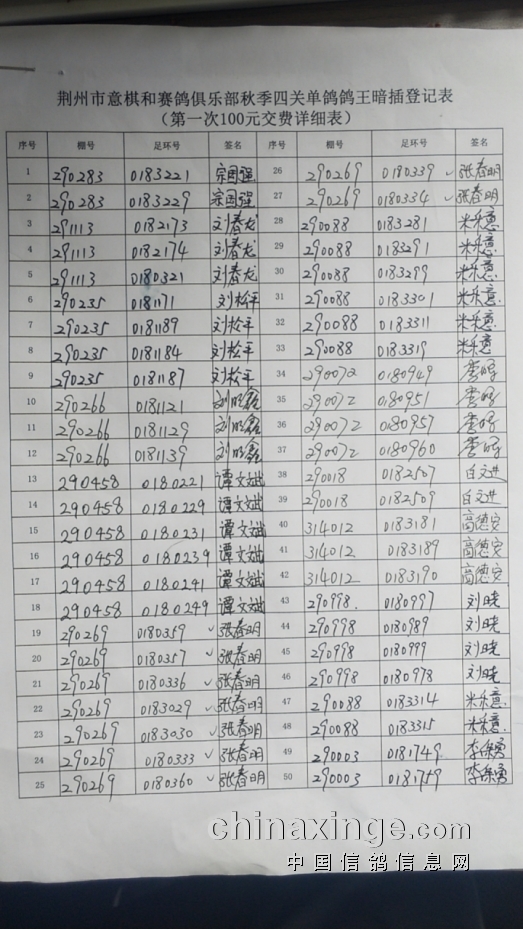 荆州市意棋和赛鸽俱乐部秋季四关单鸽鸽王暗插登记表
（第一次100元交费详细表）
序号 棚号 足环号 签名 序号 棚号 足环号 签名
1 290283 0183221 宗国强 26 290269 0180339 ✓张春明
2 290283 0183229 宗国强 27 290269 0180334 ✓张春明
3 291113 0182173 刘春龙 28 290088 0183281 米乐意
4 291113 0182174 刘春龙 29 290088 0183291 米乐意
5 291113 0180321 刘春龙 30 290088 0183299 米乐意
6 290235 0181171 刘松平 31 290088 0183301 米乐意
7 290235 0181189 刘松平 32 290088 0183311 米乐意
8 290235 0181184 刘松平 33 290088 0183319 米乐意
9 290235 0181187 刘松平 34 290072 0180949
10 290266 0181121 刘明鑫 35 290072 0180951
11 290266 0181129 刘明鑫 36 290072 0180957
12 290266 0181139 刘明鑫 37 290072 0180960
13 290458 0180221 谭文斌 38 290018 0182507 白文进
14 290458 0180229 谭文斌 39 290018 0182509 白文进
15 290458 0180231 谭文斌 40 314012 0183181 高德安
16 290458 0180239 谭文斌 41 314012 0183189 高德安
17 290458 0180241 谭文斌 42 314012 0183190 高德安
18 290458 0180249 谭文斌 43 290998 0180997 刘晓
19 290269 0180359 ✓张春明 44 290998 0180989 刘晓
20 290269 0180357 ✓张春明 45 290998 0180999 刘晓
21 290269 0180336 ✓张春明 46 290998 0180978 刘晓
22 290269 0183029 ✓张春明 47 290088 0183314 米乐意
23 290269 0183030 ✓张春明 48 290088 0183315 米乐意
24 290269 0180333 ✓张春明 49 290003 0181749
25 290269 0180360 ✓张春明 50 290003 0181759
chinaxinge.com
中国信鸽信息网